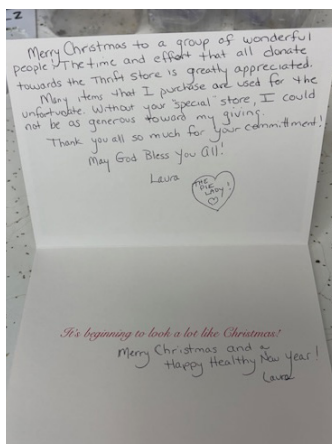 Merry Christmas to a group of wonderful
people! The time and effort that all donate
towards the Thrift Store is greatly appreciated.
Many items that I purchase are used for the
unfortunate. Without your "special" store, I could
not be as generous toward my giving.
Thank you all so much for your committment!
May God Bless You All!
Laura
THE
PIE
LADY!
It's beginning to look a lot like Christmas!
Merry Christmas and a
Happy Healthy New Year!
Laura